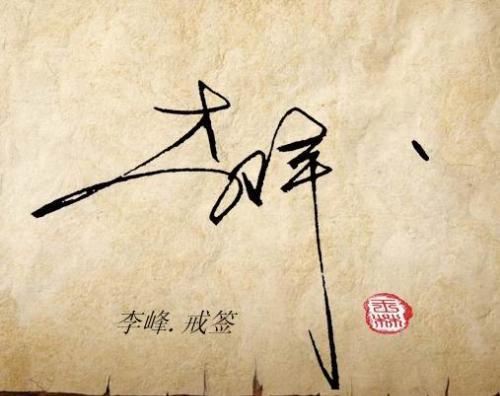 李峰
李峰.戒签